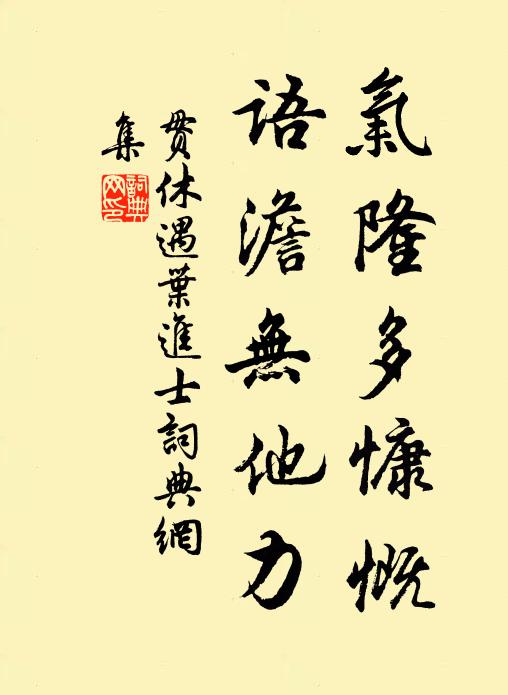 氣隆多慷慨
語澹無他力
貫休遇葉進士詞典網
集
詞典
網印